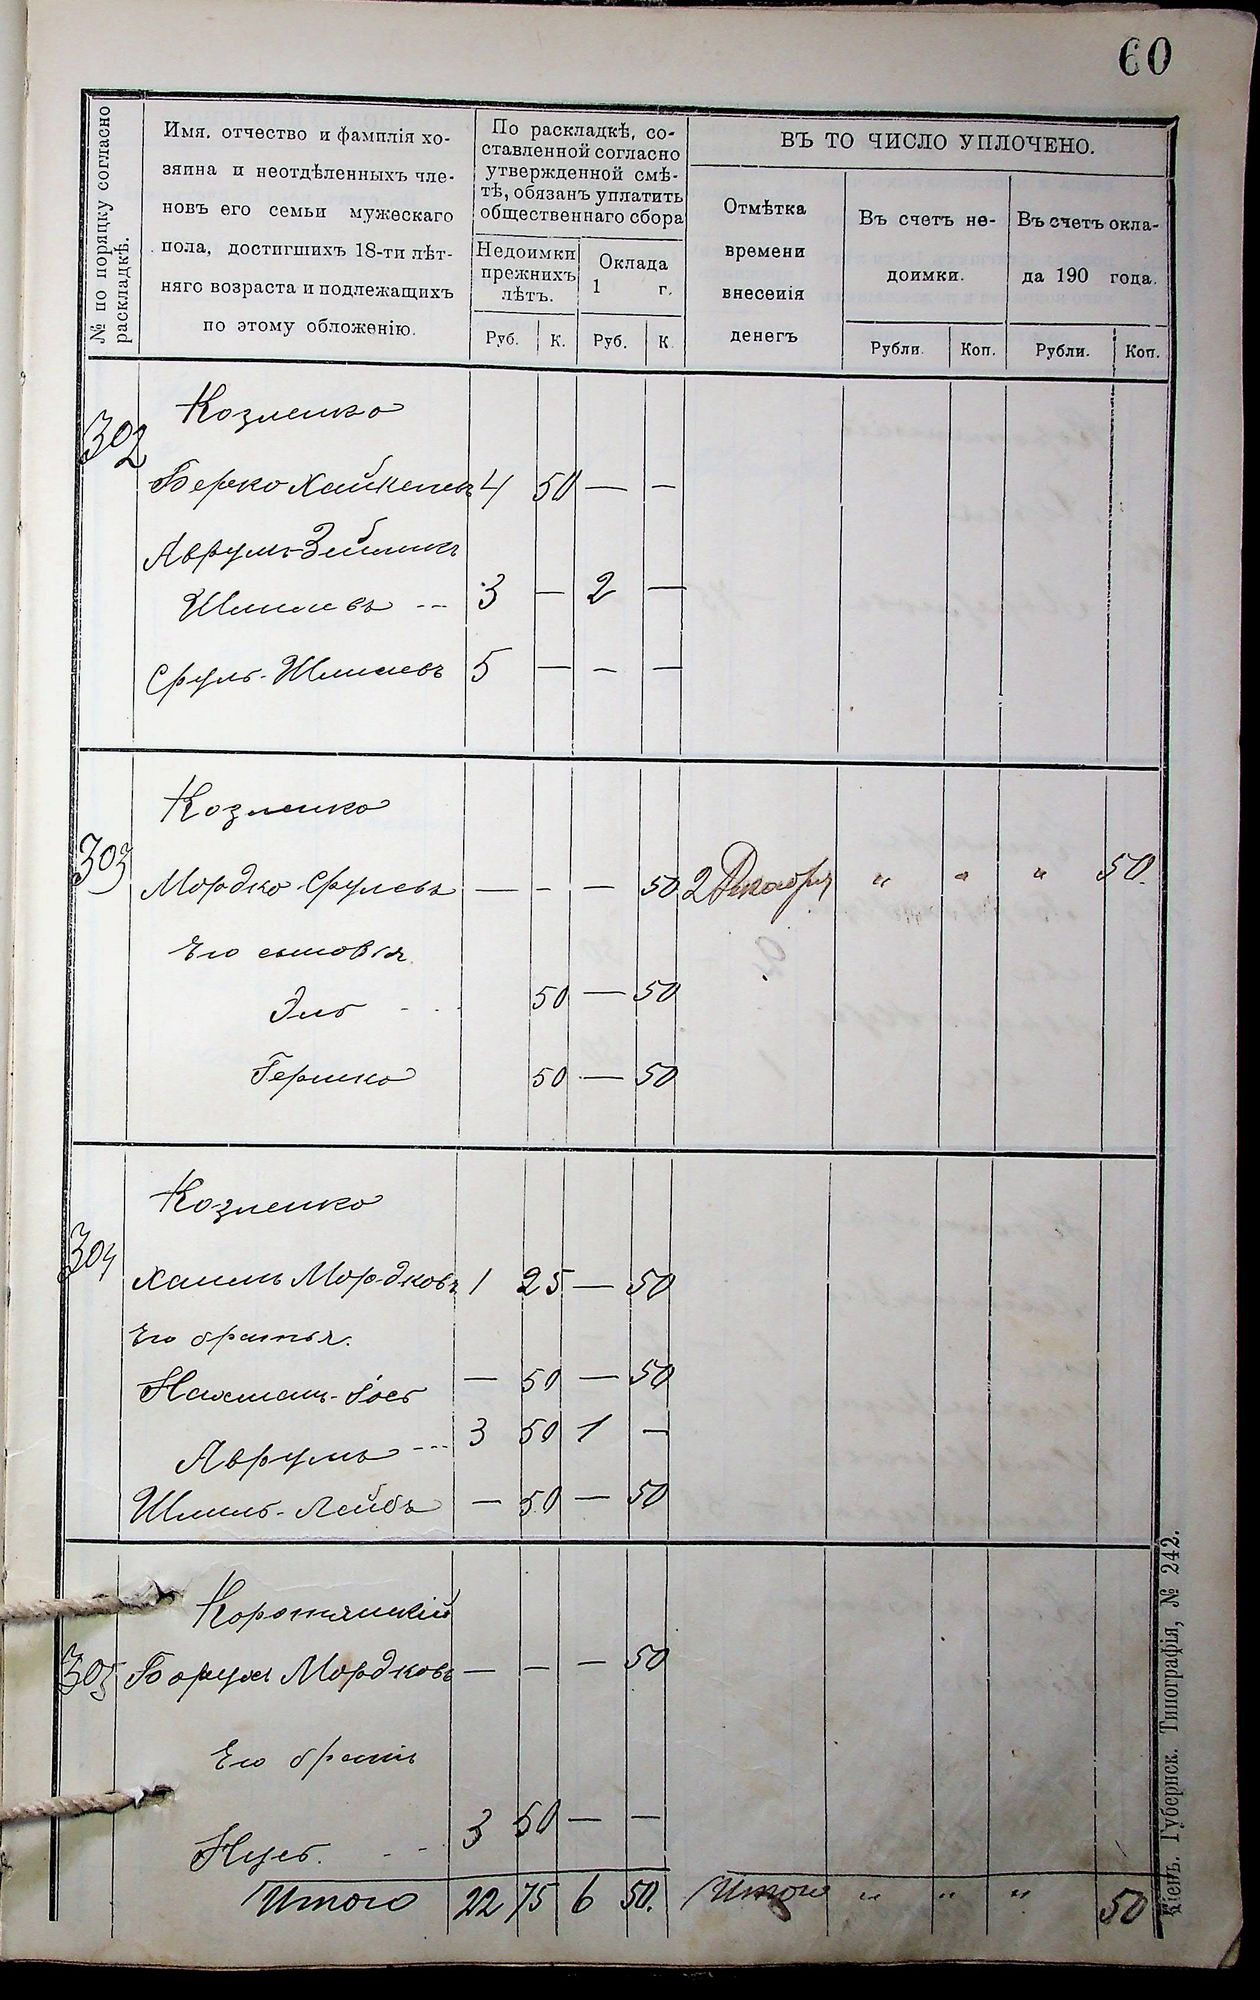 60
№ по порядку согласно
раскладкѣ.
Имя, отчество и фамилія хо-
зяина и неотдѣленныхъ чле-
новъ его семьи мужескаго
пола, достигшихъ 18-ти лѣт-
няго возраста и подлежащихъ
по этому обложенію.
По раскладкѣ, со-
ставленной согласно
утвержденной смѣ-
тѣ, обязанъ уплатить
общественнаго сбора
Недоимки
прежнихъ
лѣтъ.
Оклада
1 г.
Руб. К. Руб. К.
ВЪ ТО ЧИСЛО УПЛОЧЕНО.
Отмѣтка
времени
внесенія
денегъ
Въ счетъ не-
доимки.
Въ счетъ окла-
да 190 года.
Рубли. Коп. Рубли. Коп.
302 Козленко
Берко Хайкелевъ 4 50 — —
Аврумъ-Зейликъ
Шмилевъ -- 3 — 2 —
Сруль-Шмилевъ 5 — — —
303 Козленко
Мордко Срулевъ — - — 50 2 Декабря " " " 50.
Его сыновья
Эль - - 50 — 50
Гершко 50 — 50
304 Козленко
Хаимъ Мордковъ 1 25 — 50
Его братья.
Нахманъ-Іосъ — 50 — 50
Аврумъ --- 3 50 1 —
Шмиль-Лейбъ — 50 — 50
305 Коротянскій
Борухъ Мордковъ — — — 50
Его братъ
Нусь. - - 3 50 — —
Итого 22 75 6 50. Итого " " " 50
Кіевъ. Губернск. Типографія, № 242.